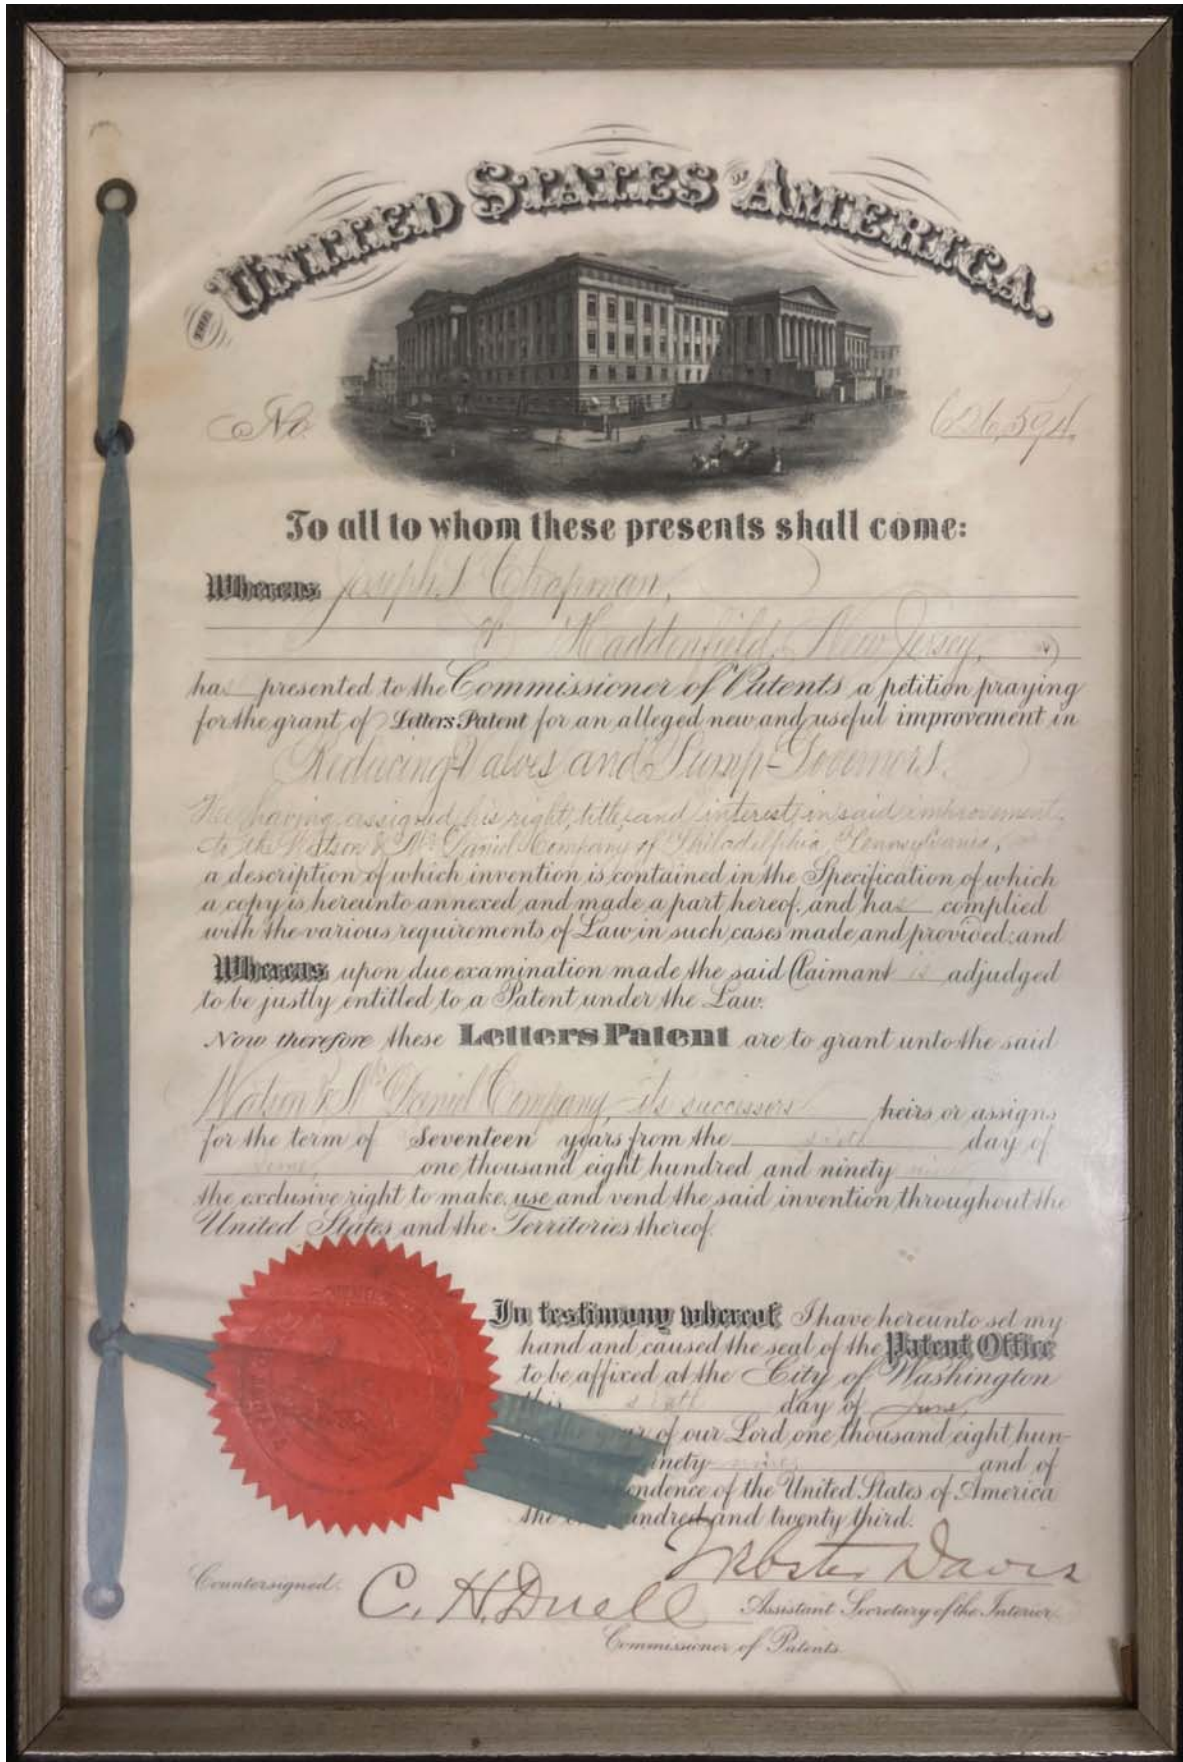 THE UNITED STATES OF AMERICA.
No. 626,594.
To all to whom these presents shall come:
Whereas Joseph S. Chapman,
of Haddonfield, New Jersey,
has presented to the Commissioner of Patents a petition praying
for the grant of Letters Patent for an alleged new and useful improvement in
Reducing-Valves and Pump-Governors.
He having assigned his right, title, and interest in said improvement,
to the Watson & McDaniel Company, of Philadelphia, Pennsylvania,
a description of which invention is contained in the Specification of which
a copy is hereunto annexed and made a part hereof, and has complied
with the various requirements of Law in such cases made and provided; and
Whereas upon due examination made the said Claimant is adjudged
to be justly entitled to a Patent under the Law.
Now therefore these Letters Patent are to grant unto the said
Watson & McDaniel Company, its successors heirs or assigns
for the term of Seventeen years from the sixth day of
June, one thousand eight hundred and ninety nine
the exclusive right to make, use and vend the said invention throughout the
United States and the Territories thereof.
In testimony whereof I have hereunto set my
hand and caused the seal of the Patent Office
to be affixed at the City of Washington
this sixth day of June,
year of our Lord one thousand eight hun-
inety nine, and of
endence of the United States of America
the undred and twenty third.
Webster Davis
Countersigned: C. H. Duell Assistant Secretary of the Interior.
Commissioner of Patents.